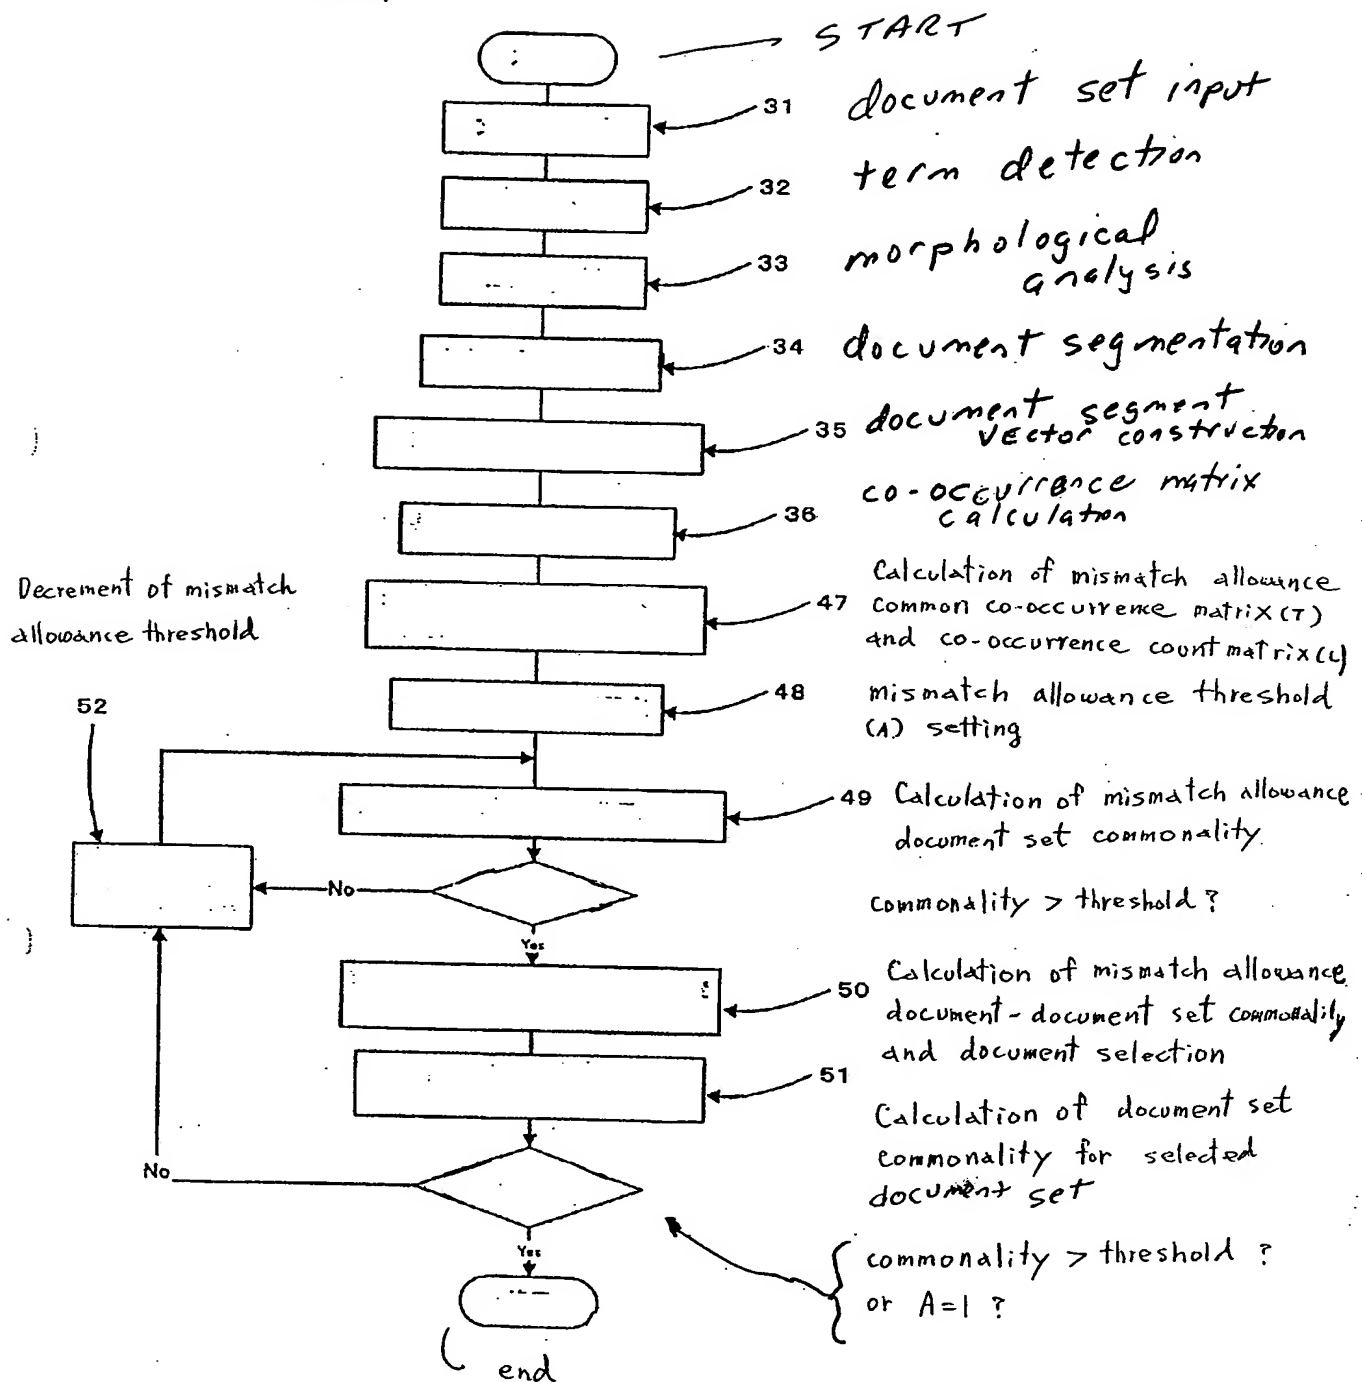 START
31 document set input
32 term detection
33 morphological
analysis
34 document segmentation
35 document segment
vector construction
36 co-occurrence matrix
calculation
Decrement of mismatch
allowance threshold
52
47 Calculation of mismatch allowance
common co-occurrence matrix (T)
and co-occurrence count matrix (L)
48 mismatch allowance threshold
(A) setting
49 Calculation of mismatch allowance
document set commonality
No
commonality > threshold ?
Yes
50 Calculation of mismatch allowance
document-document set commonality
and document selection
51 Calculation of document set
commonality for selected
document set
No
Yes
commonality > threshold ?
or A=1 ?
end